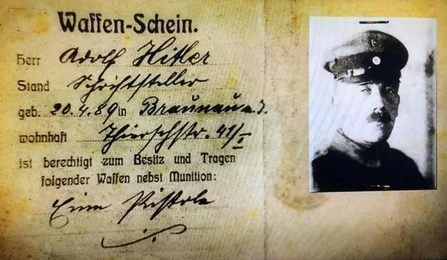 Waffen-Schein.
Herr Adolf Hitler
Stand Schriftsteller
geb. 20.4.89 in Braunau a. I.
wohnhaft Thierschstr. 41/I
ist berechtigt zum Besitz und Tragen
folgender Waffen nebst Munition:
Eine Pistole